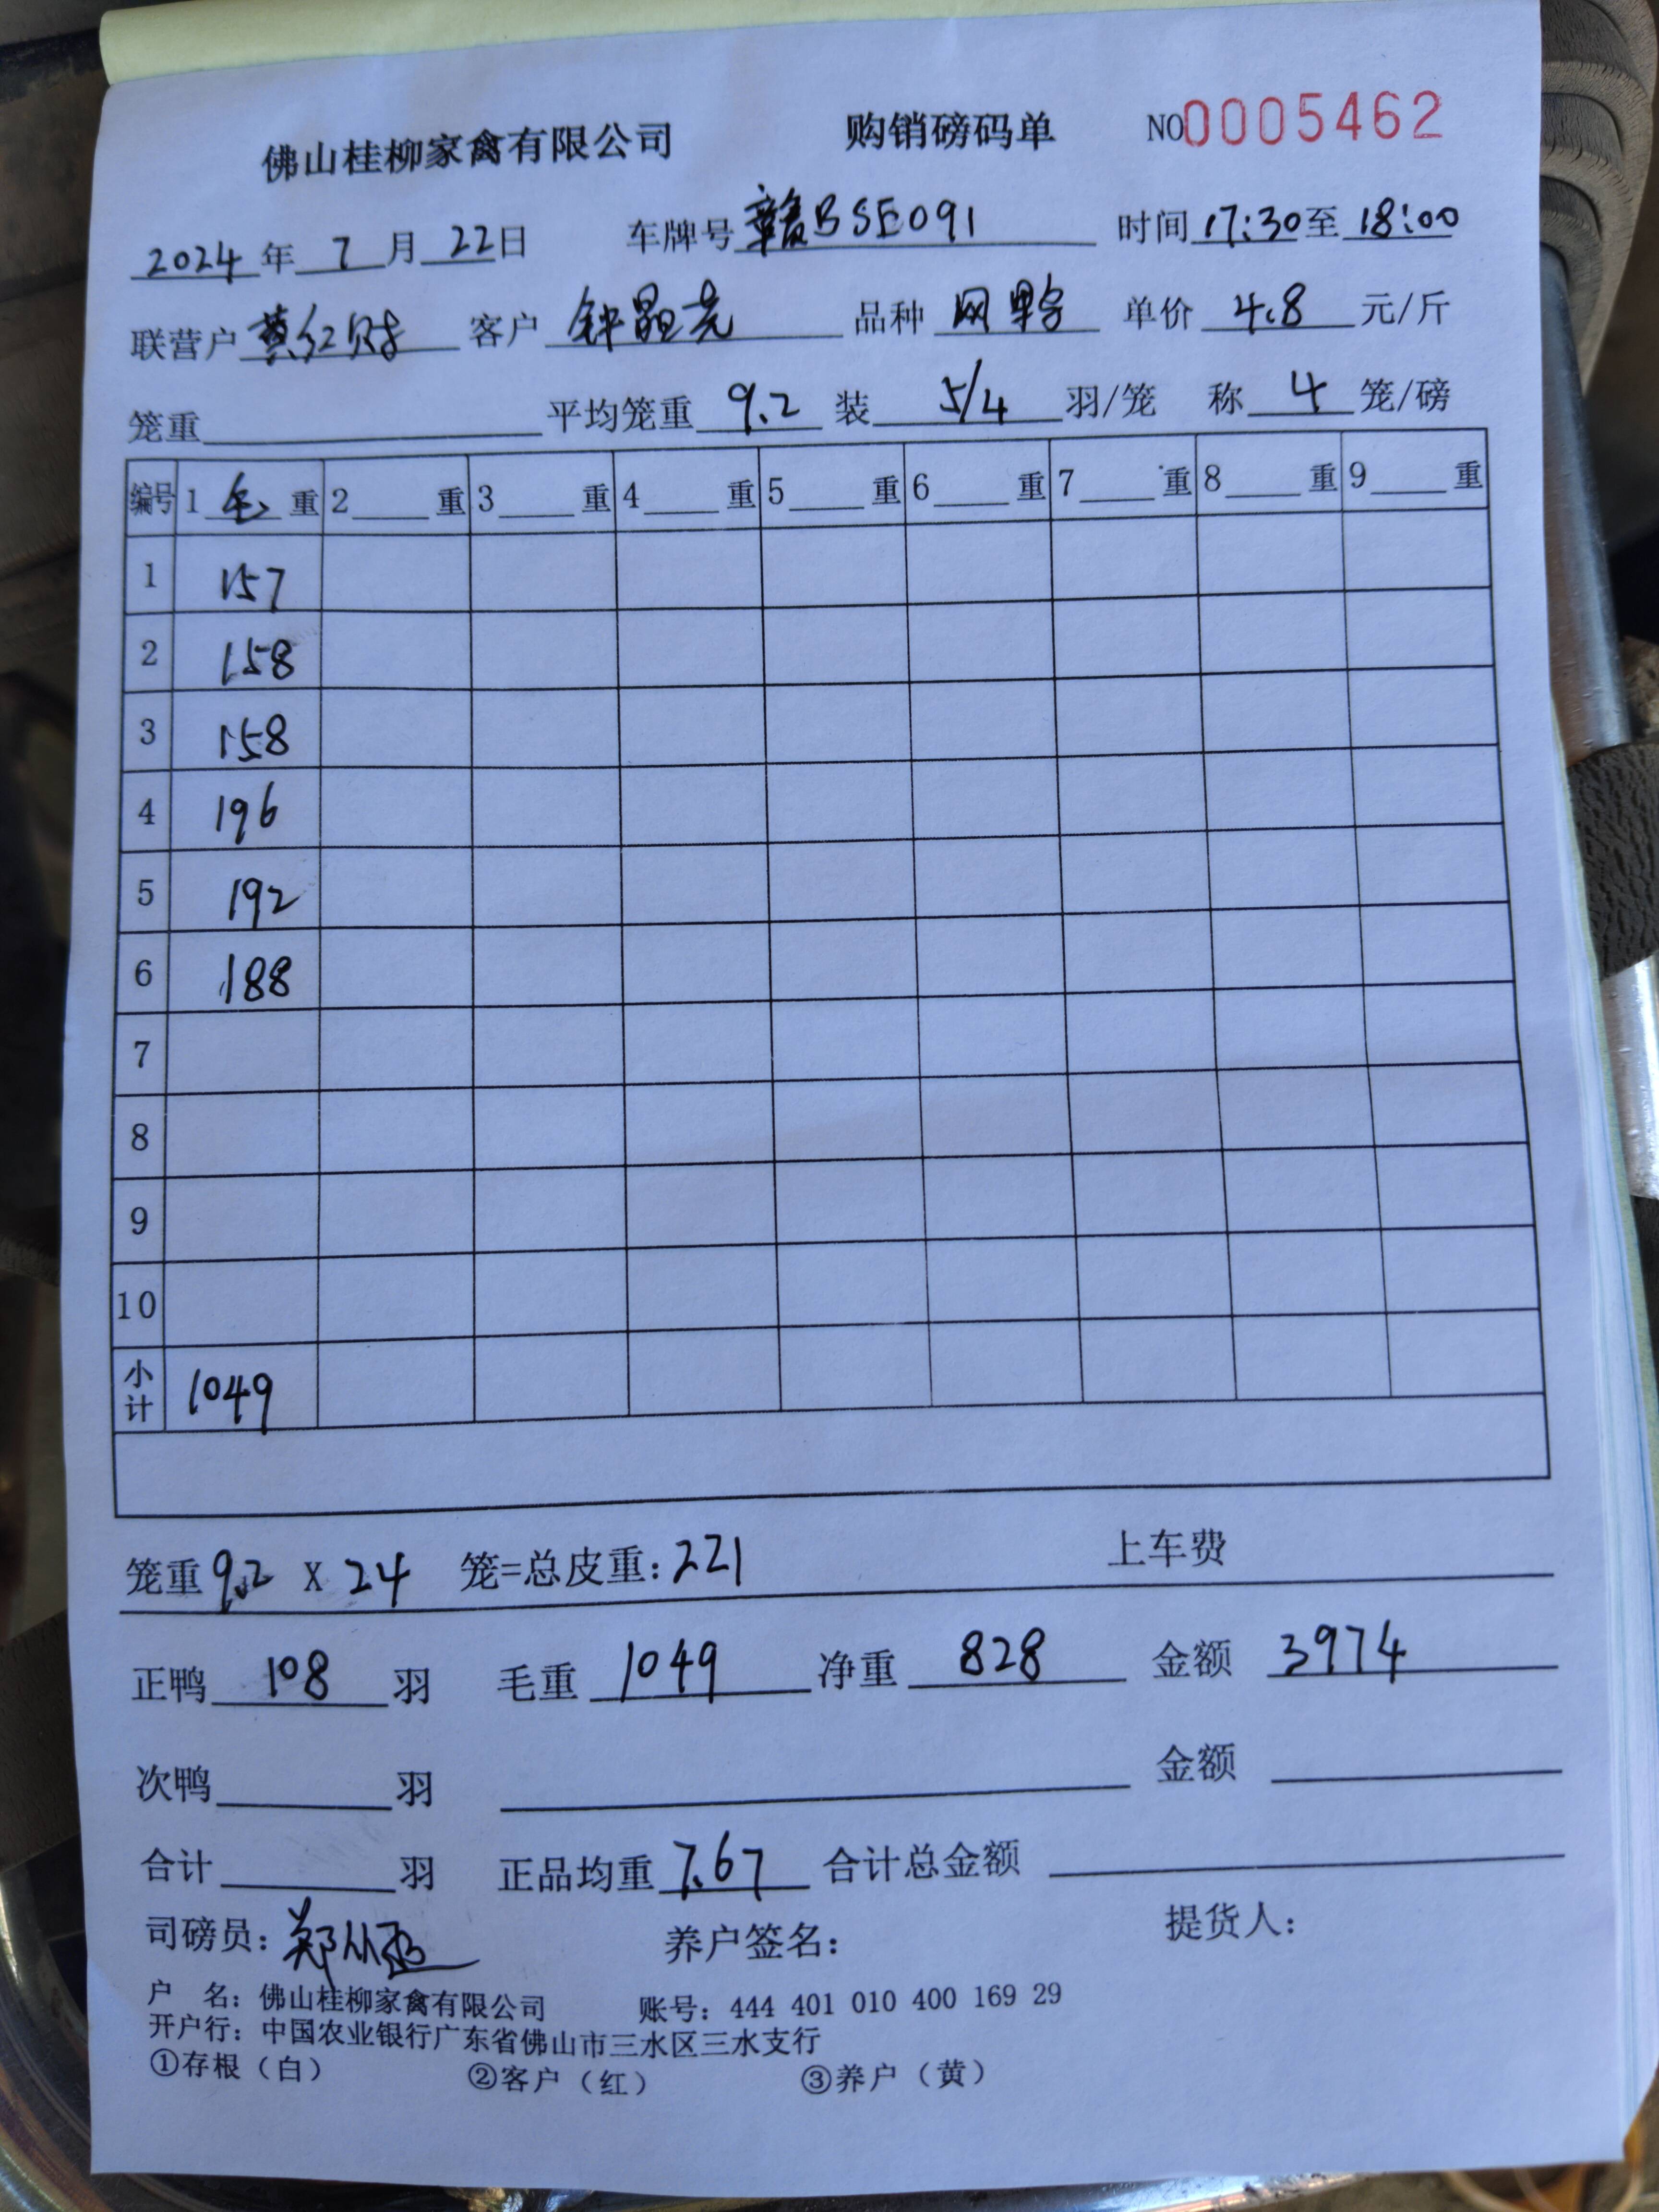 佛山桂柳家禽有限公司 购销磅码单 NO0005462
2024年7月22日 车牌号赣BSE091 时间17:30至18:00
联营户黄红财 客户钟 品种网 单价4.8元/斤
笼重 平均笼重9.2装5/4羽/笼 称4笼/磅
编号 1毛重 2重 3重 4重 5重 6重 7重 8重 9重
1 157
2 158
3 158
4 196
5 192
6 188
7
8
9
10
小计 1049
笼重9.2X24 笼=总皮重:221 上车费
正鸭108羽 毛重1049净重828 金额3974
次鸭羽 金额
合计羽 正品均重7.67 合计总金额
司磅员:郑 养户签名: 提货人:
户 名:佛山桂柳家禽有限公司 账号:444 401 010 400 169 29
开户行:中国农业银行广东省佛山市三水区三水支行
①存根(白) ②客户(红) ③养户(黄)